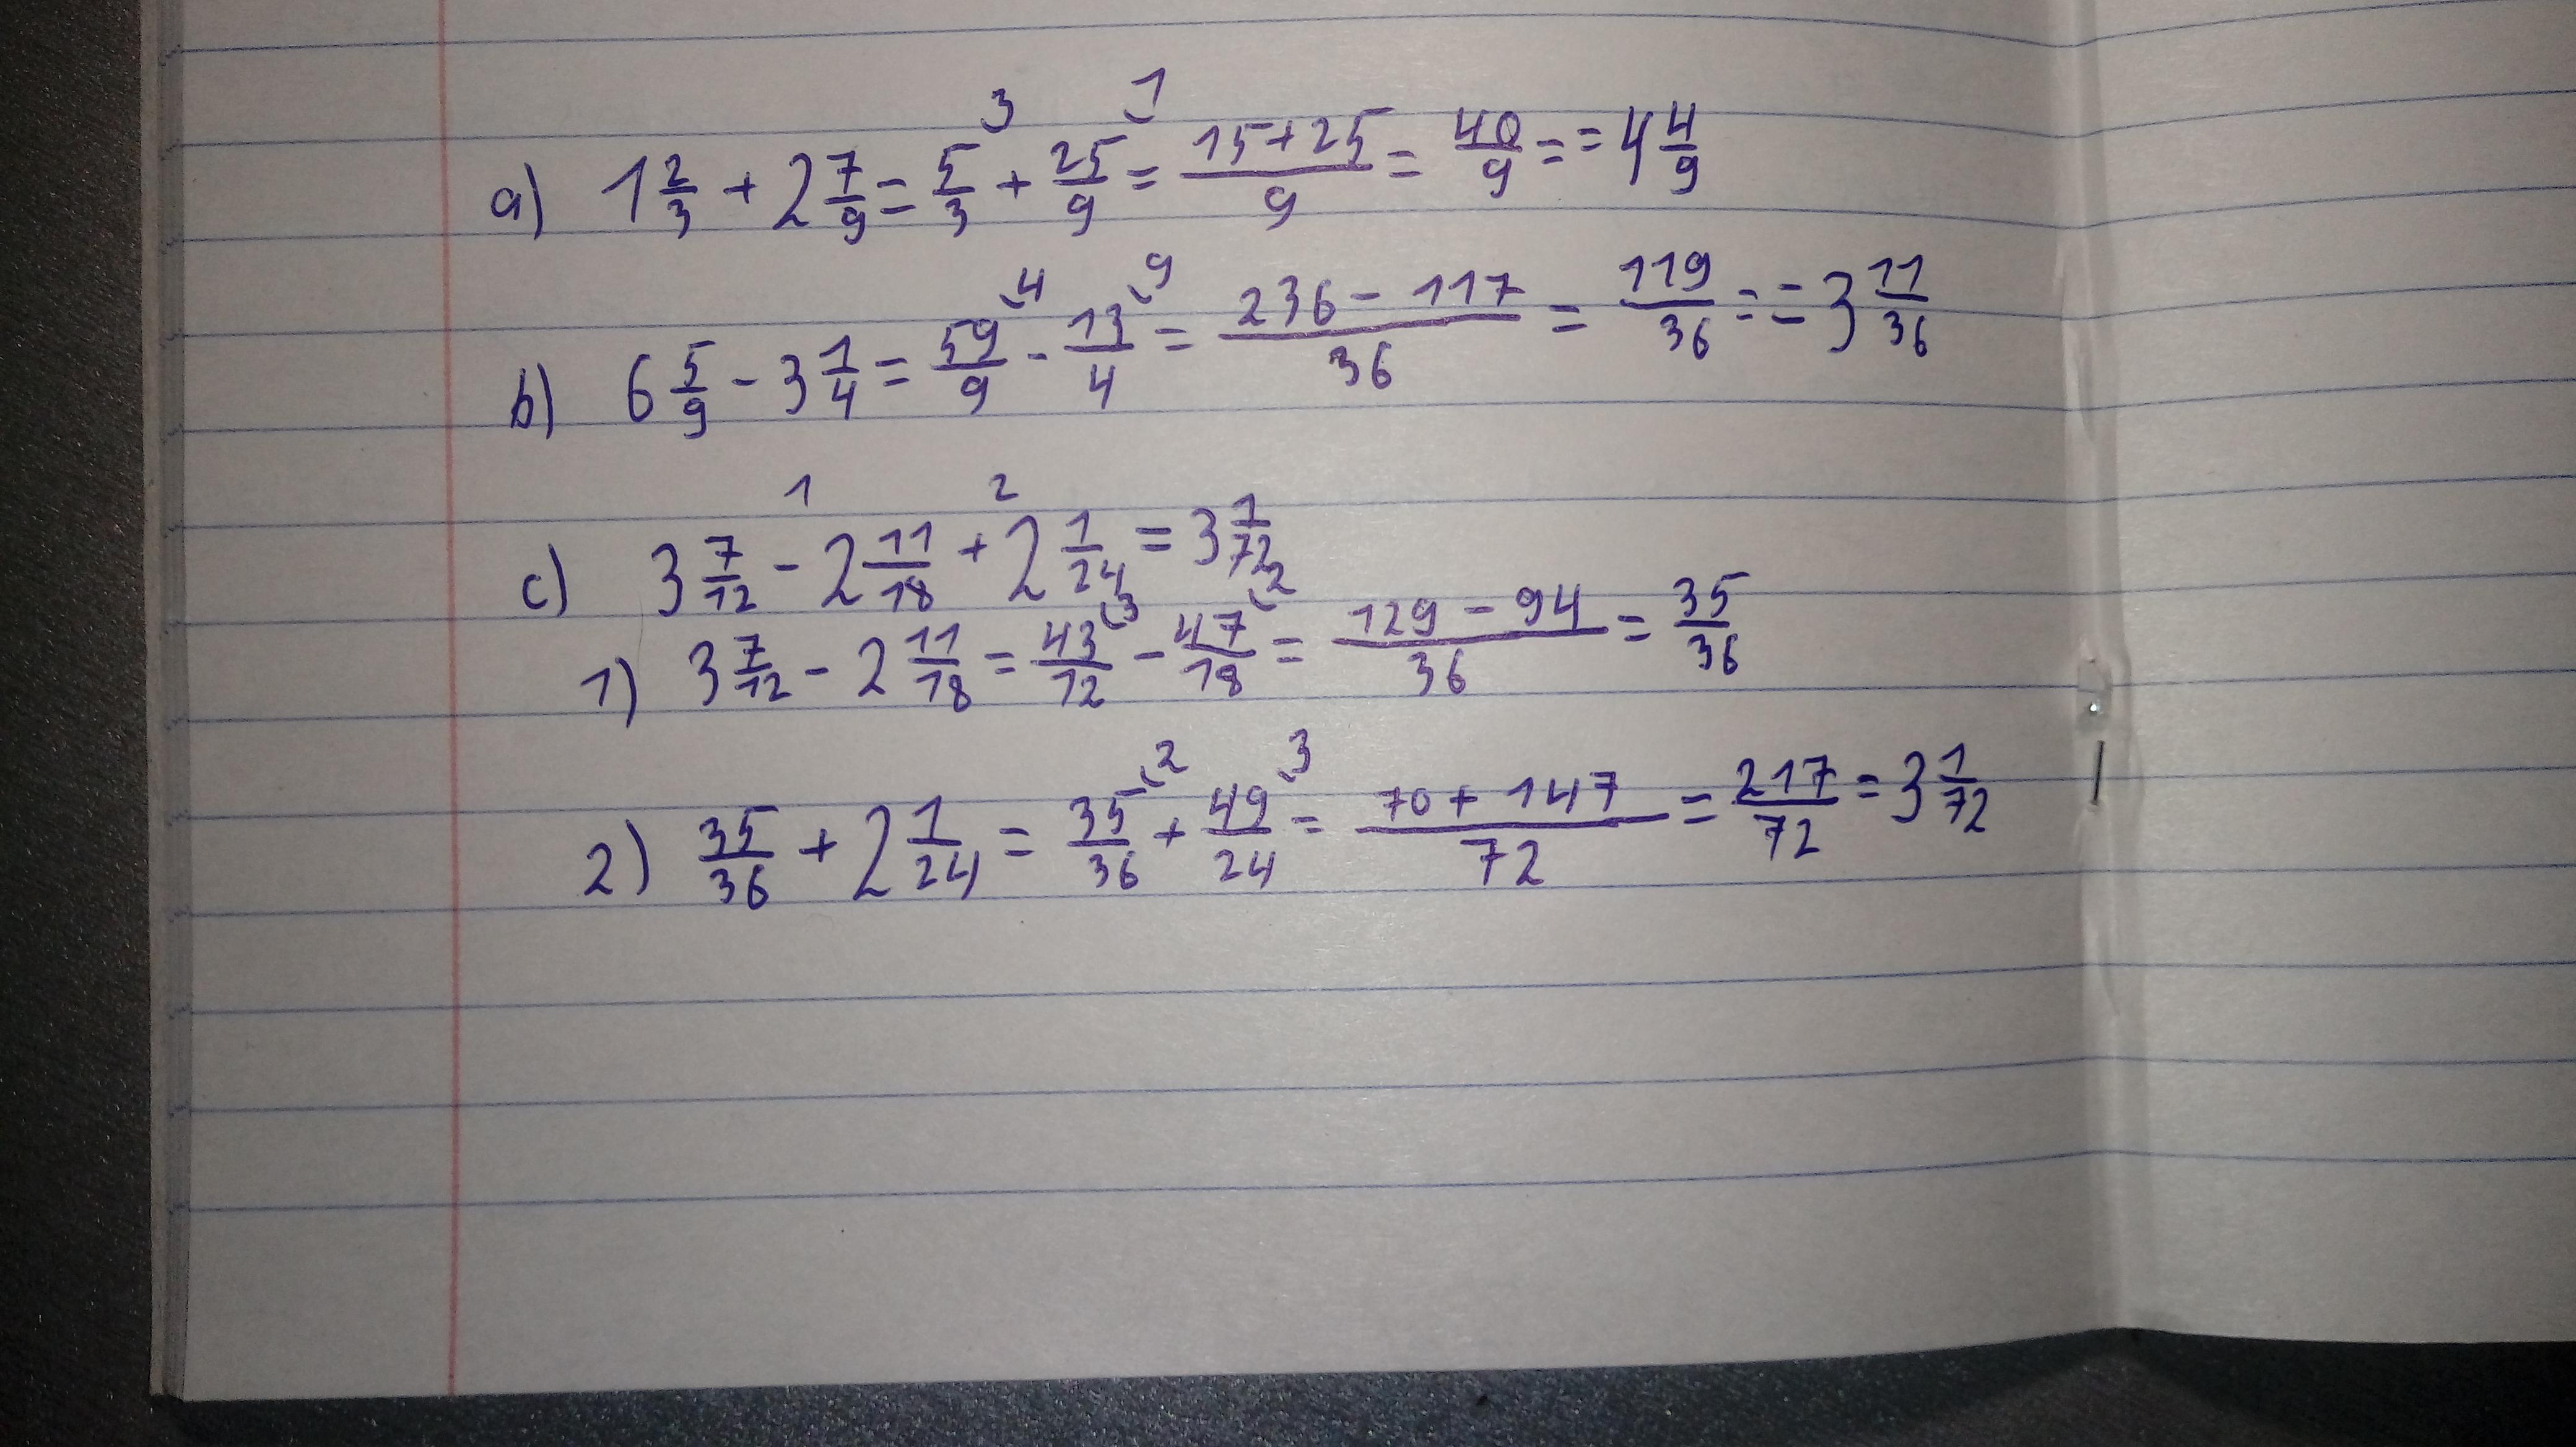 a) 1 2/3 + 2 7/9 = 5/3 ³ + 25/9 ¹ = (15+25)/9 = 40/9 = = 4 4/9
b) 6 5/9 - 3 1/4 = 59/9 ⁴ - 13/4 ⁹ = (236 - 117)/36 = 119/36 = = 3 11/36
c) 3 7/12 -¹ 2 11/18 +² 2 1/24 = 3 1/72
1) 3 7/12 - 2 11/18 = 43/12 ³ - 47/18 ² = (129 - 94)/36 = 35/36
2) 35/36 + 2 1/24 = 35/36 ² + 49/24 ³ = (70 + 147)/72 = 217/72 = 3 1/72